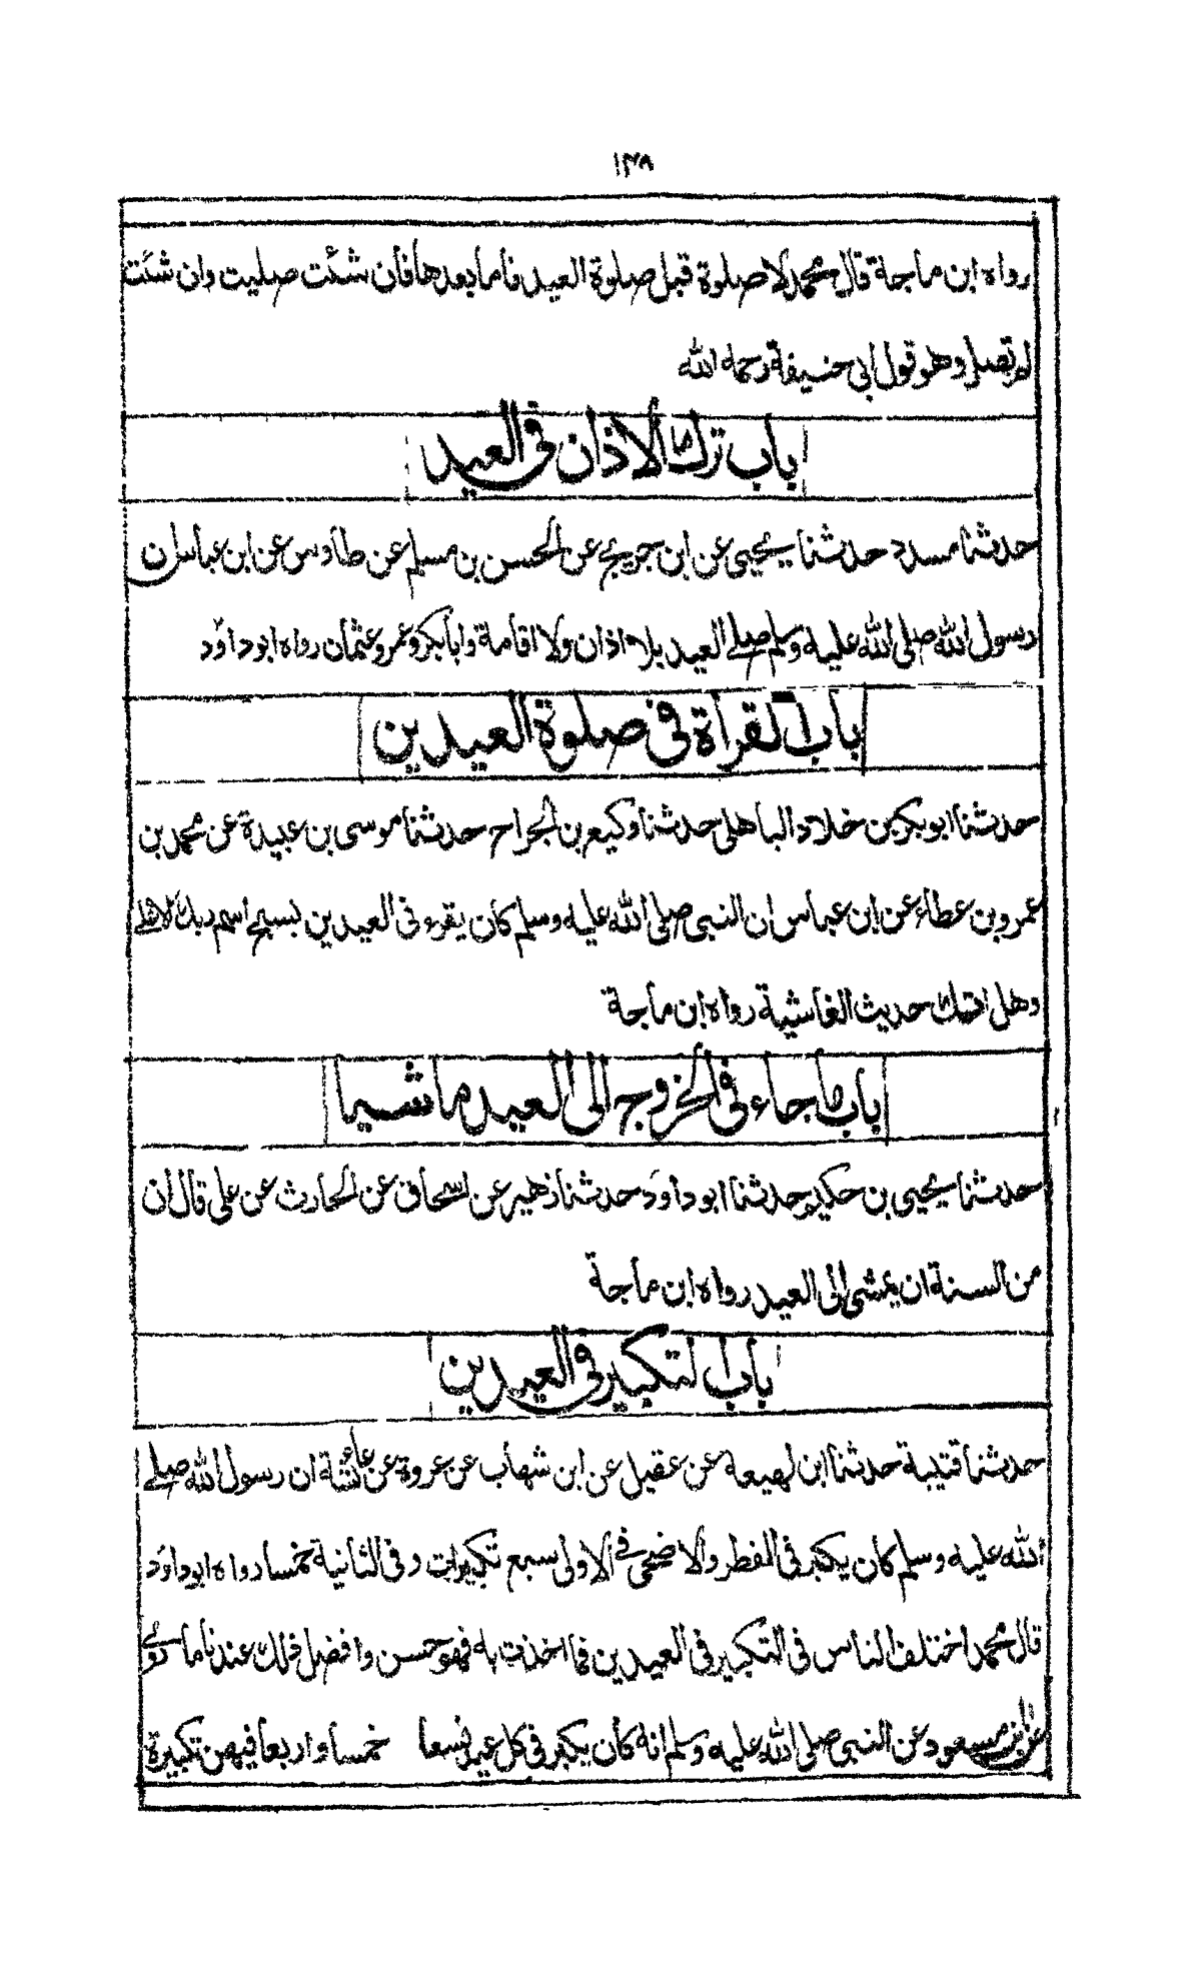 ۱۳۸
رواه ابن ماجة قال محمد لا صلوة قبل صلوة العيد فأما بعدها فأن شئت صليت وان شئت
لم تصل وهو قول ابي حنيفة رحمه الله
باب ترك الاذان فى العيد
حدثنا مسدد حدثنا يحيى عن ابن جريج عن الحسن بن مسلم عن طاؤس عن ابن عباس ان
رسول الله صلى الله عليه وسلم صلے العيد بلا اذان ولا اقامة وابابكر وعمر وعثمان رواه ابو داؤد
باب القرأة فى صلوة العيدين
حدثنا ابو بكر بن خلاد الباهلى حدثنا وكيع بن الجراح حدثنا موسى بن عبيدة عن محمد بن
عمرو بن عطاء عن ابن عباس ان النبى صلى الله عليه وسلم كان يقرء فى العيدين بسبح اسم ربك الاعلے
وهل اتيك حديث الغاشية رواه ابن ماجة
باب ما جاء فى الخروج الى العيد ماشيا
حدثنا يحيى بن حكيم حدثنا ابو داؤد حدثنا زهير عن اسحاق عن الحارث عن على قال ان
من السنة ان يمشى الى العيد رواه ابن ماجة
باب التكبير فى العيدين
حدثنا قتيبة حدثنا ابن لهيعة عن عقيل عن ابن شهاب عن عروة عن عائشة ان رسول الله صلے
الله عليه وسلم كان يكبر فى الفطر والاضحى فے الاولى سبع تكبيرات وفى الثانية خمسا رواه ابو داؤد
قال محمد اختلف الناس فى التكبير فى العيدين فما اخذت به فهو حسن وافضل ذلك عندنا ما روے
عن ابن مسعود عن النبى صلى الله عليه وسلم انه كان يكبر فى كل عيد تسعا خمسا واربعا فيهن تكبيرة